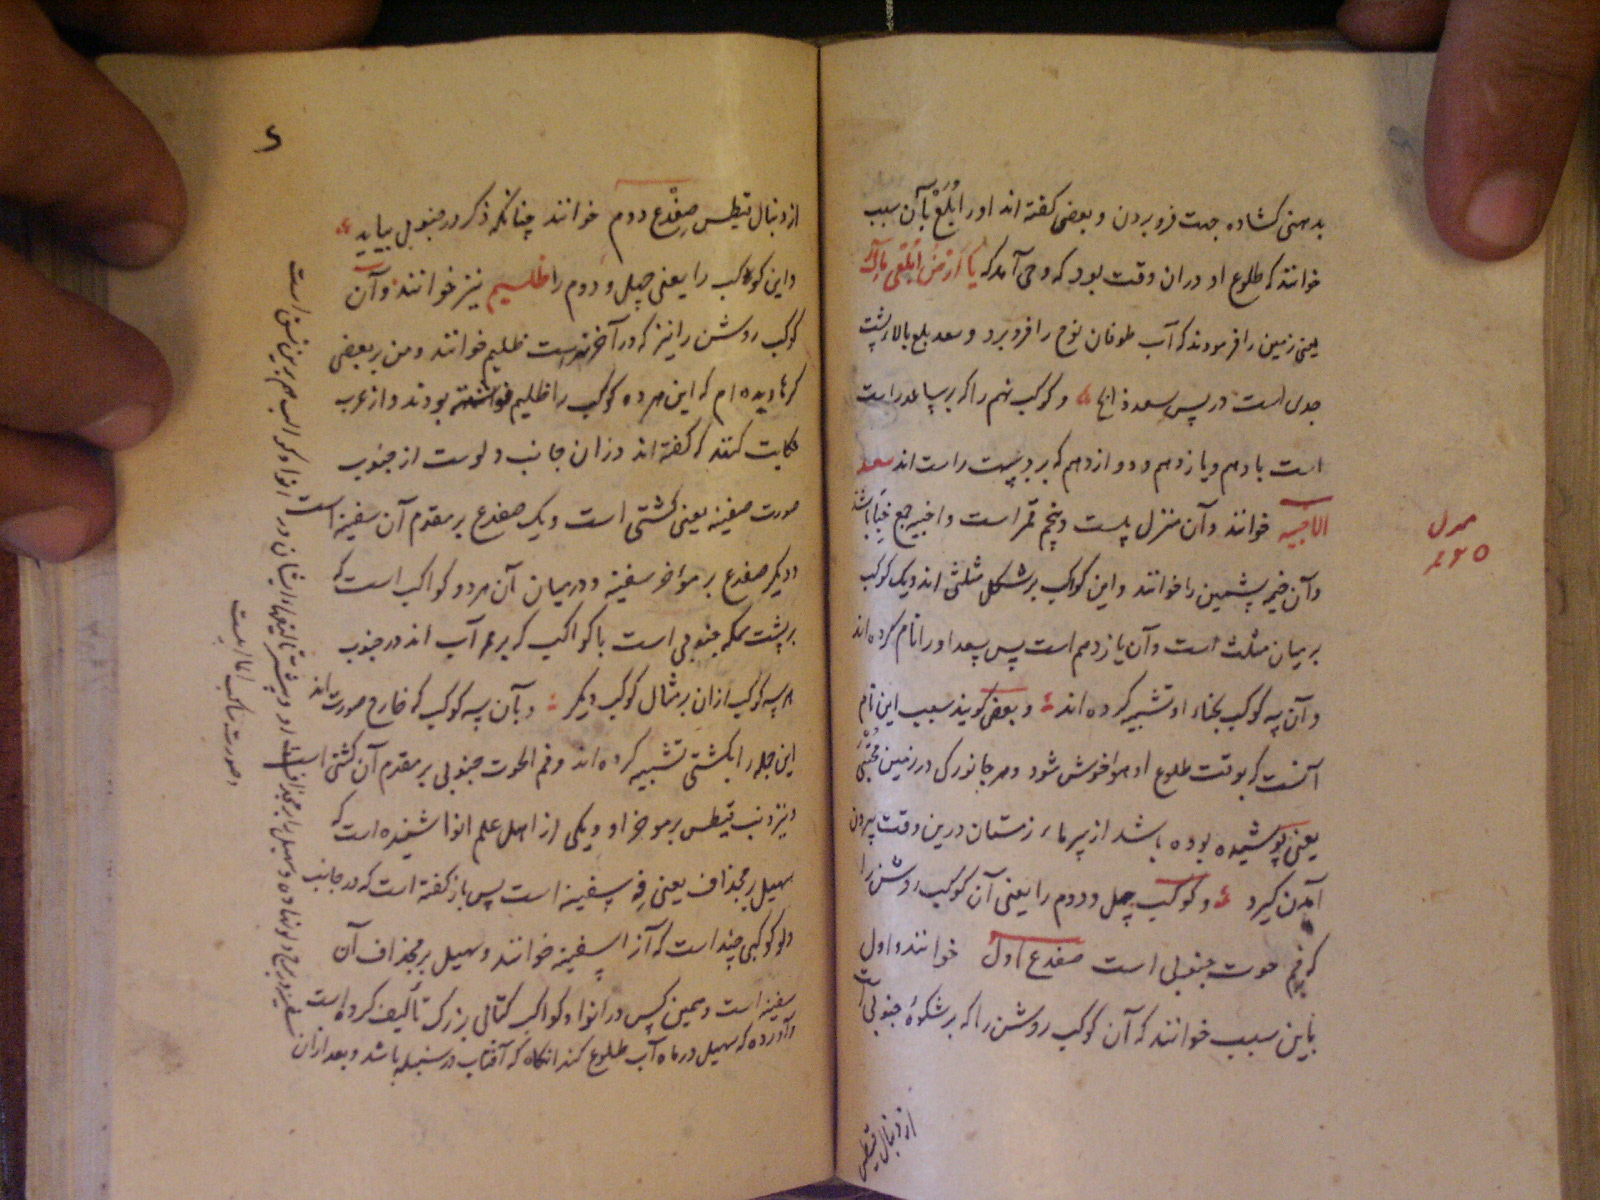 بدهنی کشاده جهت فرو بردن و بعضی کفته اند او را بلع بآن سبب
خوانند که طلوع او دران وقت بود که وحی آمد که یا ارض ابلعی ماءک
یعنی زمین را فرمودند که آب طوفان نوح را فرو برد و سعد بلع بالاء پشت
جدی است در پس سعد ذابح و کوکب نهم را که بر ساعد راست
است با دهم و یازدهم و دوازدهم که بر دست راست اند سعد
الاخبیه خوانند و آن منزل بیست و پنجم قمر است و اخبیه جمع خبا باشد
منزل
۲۵
و آن خیمه پشمین را خوانند و این کواکب بر شکل مثلثی اند و یک کوکب
بر میان مثلث است و آن یازدهم است پس سعد او را نام کرده اند
و آن سه کوکب بخباء او تشبیه کرده اند و بعضی کویند سبب این نام
آنست که بوقت طلوع او هوا خوش شود و هر جانورکی در زمین مختبی
یعنی پوشیده بوده باشد از سرماء زمستان درین وقت بیرون
آمدن کیرد و کوکب چهل و دوم را یعنی آن کوکب روشن را
که فم حوت جنوبی است ضفدع اول خوانند و اول
باین سبب خوانند که آن کوکب روشن را که بر شکوهٔ جنوبی است
از دنبال قیطس
۶
از دنبال قیطس ضفدع دوم خوانند چنانکه ذکر در جنوبی بیاید
و این کوکب را یعنی چهل و دوم را ظلیم نیز خوانند و آن
کوکب روشن را نیز که در آخر نهر است ظلیم خوانند و من بر بعضی
کرها دیده ام که این هر دو کوکب را ظلیم نوشته بودند و از عرب
حکایت کنند که کفته اند در آن جانب دلوست از جنوب
صورت سفینه یعنی کشتی است و یک ضفدع بر مقدم آن سفینه است
و دیکر ضفدع بر مواخر سفینه و در میان آن هر دو کواکب است که
بر پشت سمکه جنوبی است با کواکب که بر آب اند در جنوب
سه کوکب ازان بر مثال کوکب دیکر و بآن سه کوکب که خارج صورت اند
این جمله را بکشتی تشبیه کرده اند و فم الحوت جنوبی بر مقدم آن کشتی است
و نیز ذنب قیطس بر موخر او و یکی از اهل علم انوا شنیده است که
سهیل بر مجذاف یعنی فه سفینه است پس باز کفته است که در جانب
دلو کوکبی چند است که آنرا سفینه خوانند و سهیل بر مجذاف آن
سفینه است و همین کس در انوا و کواکب کتابی بزرک تألیف کرده است
و آورده که سهیل در ماه آب طلوع کند انکاه که آفتاب در سنبله باشد و بعد ازان